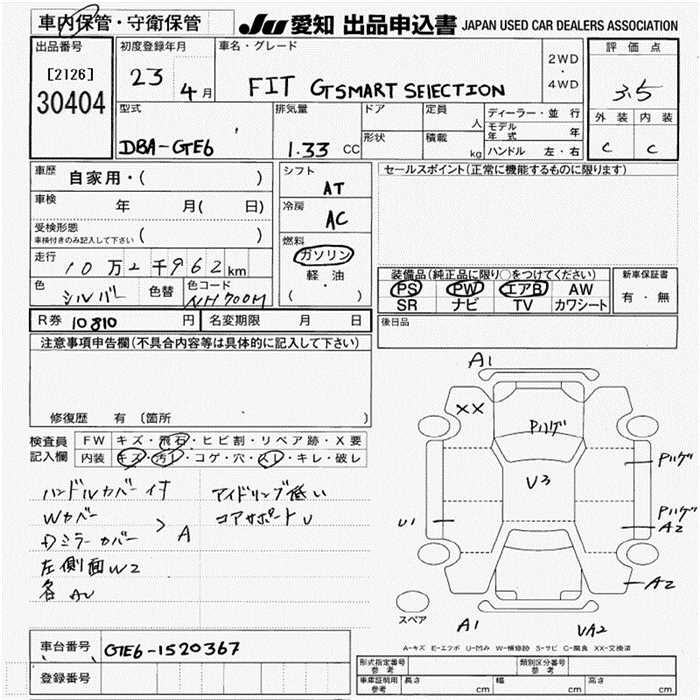 車内保管・守衛保管
JU 愛知 出品申込書 JAPAN USED CAR DEALERS ASSOCIATION
出品番号
[2126]
30404
初度登録年月
23 4月
車名・グレード
FIT G SMART SELECTION
2WD
・
4WD
評価点
3.5
外装 内装
C C
型式
DBA-GE6
排気量
1.33 CC
ドア
形状
定員
人
積載
kg
ディーラー・並行
モデル年式 年
ハンドル 左・右
車歴 自家用・( )
車検 年 月( 日)
受検形態
車検付きのみ記入して下さい ( )
走行 10万2千962km
色 シルバー 色替 色コード NH700M
シフト
AT
冷房
AC
燃料
ガソリン
・
軽油
( )
セールスポイント(正常に機能するものに限ります)
装備品(純正品に限り○をつけてください)
PS PW エアB AW
SR ナビ TV カワシート
新車保証書
有・無
後日品
R券 10810 円 名変期限 月 日
注意事項申告欄(不具合内容等は具体的に記入して下さい)
修復歴 有(箇所 )
検査員記入欄
FW キズ・飛石・ヒビ割・リペア跡・X要
内装 キズ・汚レ・コゲ・穴・スレ・キレ・破レ
ハンドルカバー付
Wカバー
Dミラーカバー
> A
左側面W2
各AU
アイドリング低い
コアサポートU
A1
XX
Pハゲ
V3
Pハゲ
Pハゲ
A2
U1
A2
スペア
A1
UA2
A-キズ E-エクボ U-凹み W-補修跡 S-サビ C-腐食 XX-交換済
車台番号 GE6-1520367
登録番号
型式指定番号
参考
類別区分番号
参考
車庫証明用
参考
長さ cm 幅 cm 高さ cm